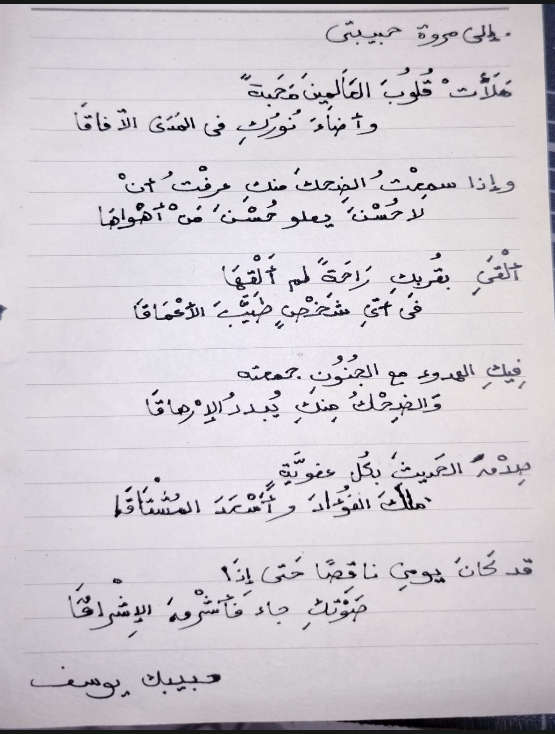 . إلى مروة حبيبتى
مَلَأْت ْ قُلُوبَ العَالَمِينَ مَحَبةً
وأضاءَ نُورُكِ فى المَدَى الآفاقَا
وإذا سمِعْتُ الضِحكَ منكِ عرفْتُ أنْ
لا حُسْنَ يعلو حُسْنَ مَنْ أهْواهَا
ألْقَى بقُربِكِ رَاحَةً لم ألْقهَا
فى أىِّ شَخْصٍ طَيَّبَ الأعْمَاقَا
فِيكِ الهدوء مع الجُنُونِ جمعته
وَالضِحْكُ مِنكِ يُبددُ الإرْهاقَا
الحَديثَ بكُل عفويَّةٍ
ملَكَ الفُؤَادَ وأسْعَدَ المُشْتَاقَا
قد كَانَ يومِى ناقصًا حَتى إذَا
صَوْتكِ جاء فَأشْرقَ الإشْراقَا
حبيبك يوسف